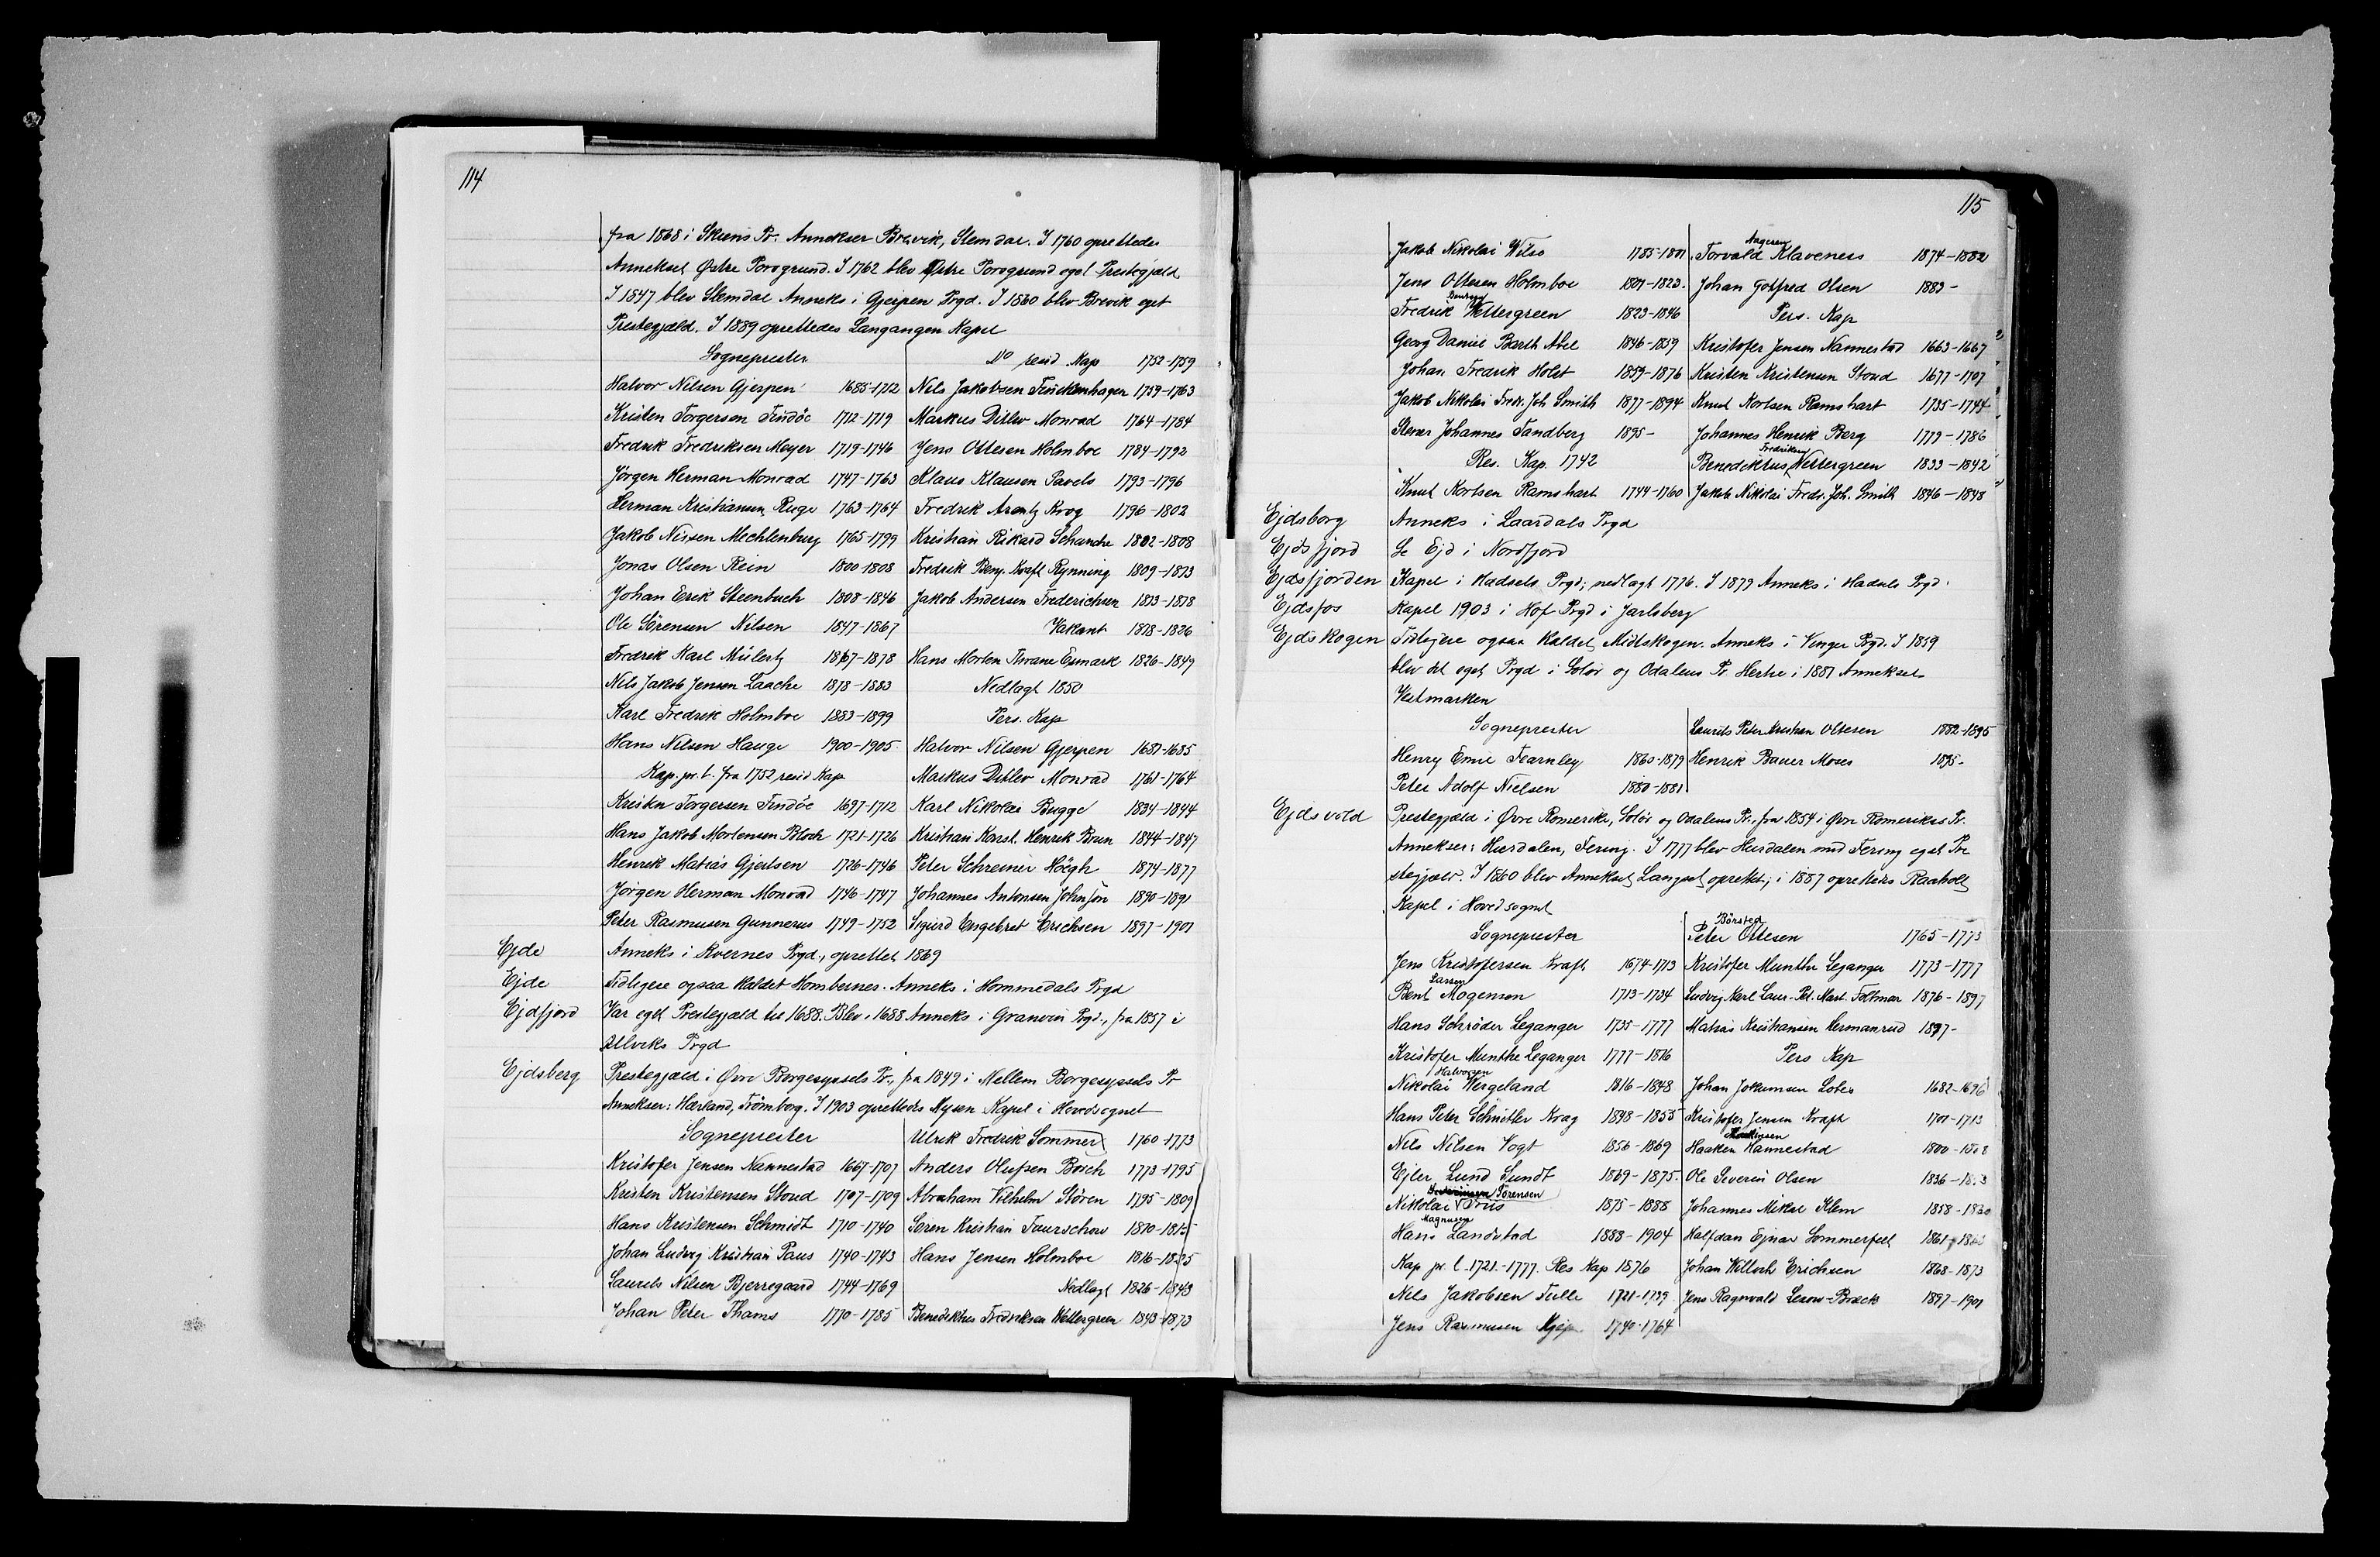 114
fra 1868 i Skiens Pr. Annekser Brevik, Slemdal. I 1760 oprettedes
Annekset Østre Porsgrund. I 1762 blev Østre Porsgrund eget Prestegjæld
I 1847 blev Slemdal Anneks i Gjerpen Prgd. I 1860 blev Brevik eget
Prestegjæld. I 1889 oprettedes Langangen Kapel
Sogneprester
Halvor Nilsen Gjerpen 1685-1712
Kristen Torgersen Tindöe 1712-1719
Fredrik Fredriksen Meyer 1719-1746
Jörgen Herman Monrad 1747-1763
Herman Kristiansen Ruge 1763-1764
Jakob Nissen Mechlenburg 1765-1799
Jonas Olsen Rein 1800-1808
Johan Erik Steenbuch 1808-1846
Ole Sörensen Nilsen 1847-1867
Fredrik Karl Mülertz 1867-1878
Nils Jakob Jensen Laache 1878-1883
Karl Fredrik Holmboe 1883-1899
Hans Nilsen Hauge 1900-1905
Kap. pr. l. fra 1752 resid Kap
Kristen Torgersen Tindöe 1697-1712
Hans Jakob Mortensen Bloch 1721-1726
Henrik Matias Gjertsen 1726-1746
Jörgen Herman Monrad 1746-1747
Peter Rasmusen Gunnerus 1749-1752
Do resid. Kap 1752-1759
Nils Jakobsen Finckenhagen 1759-1763
Markus Ditlev Monrad 1764-1784
Jens Ottesen Holmboe 1784-1792
Klaus Klausen Pavels 1793-1796
Fredrik Arentz Krog 1796-1802
Kristian Rikard Schanche 1802-1808
Fredrik Benj. Kraft Rynning 1809-1813
Jakob Andersen Frederichsen 1813-1818
Vakant 1818-1826
Hans Morten Thrane Esmark 1826-1849
Nedlagt 1850
Pers. Kap
Halvor Nilsen Gjerpen 1681-1685
Markus Ditlev Monrad 1761-1764
Karl Nikolai Bugge 1834-1844
Kristian Konst. Henrik Brun 1844-1847
Peter Schreiner Höegh 1874-1877
Johannes Antonsen Johnson 1890-1891
Sigurd Engebret Erichsen 1897-1901
Ejde Anneks i Kvernes Prgd., oprettet 1869
Ejde Tidligere ogsaa kaldet Hombernes. Anneks i Hommedals Prgd
Ejdfjord Var eget Prestegjæld til 1688. Blev i 1688 Anneks i Granvin Prgd., fra 1857 i
Ulviks Prgd
Ejdsberg Prestegjæld i Øvre Borgesyssels Pr., fra 1849 i Mellem Borgesyssels Pr
Annekser: Hærland, Trömborg. I 1903 oprettedes Mysen Kapel i Hovedsognet
Sogneprester
Kristofer Jensen Nannestad 1667-1707
Kristen Kristensen Stoud 1707-1709
Hans Kristensen Schmidt 1710-1740
Johan Ludvig Kristian Paus 1740-1743
Laurids Nilsen Bjerregaard 1744-1769
Johan Peter Thams 1770-1785
Ulrik Fredrik Sommer 1760-1773
Anders Olufsen Bosch 1773-1795
Abraham Vilhelm Støren 1795-1809
Søren Kristian Taurschow 1810-1815
Hans Jensen Holmboe 1816-1825
Nedlagt 1826-1843
Benediktus Fredriksen Wettergreen 1843-1873
115
Jakob Nikolai Wilse 1785-1801
Jens Ottesen Holmboe 1801-1823
Fredrik Wettergreen 1823-1846
Georg Daniel Barth Abel 1846-1859
Johan Fredrik Holst 1859-1876
Jakob Nikolai Fredr. Joh. Smith 1877-1894
Stener Johannes Sandberg 1895-
Res. Kap. 1742
Knut Kortsen Ramshart 1744-1760
Aagesen
Torvald Klaveness 1874-1882
Johan Gotfred Olsen 1883-
Pers. Kap
Kristofer Jensen Nannestad 1663-1667
Kristen Kristensen Stoud 1677-1707
Knut Kortsen Ramshart 1735-1744
Johannes Henrik Berg 1779-1786
Fredriksen
Benediktus Wettergreen 1833-1842
Jakob Nikolai Fredr. Joh. Smith 1846-1848
Ejdsborg Anneks i Laardals Prgd
Ejdsfjord Se Ejd i Nordfjord
Ejdsfjorden Kapel i Hadsels Prgd; nedlagt 1776. I 1879 Anneks i Hadsels Prgd.
Ejdsfos Kapel 1903 i Hof Prgd i Jarlsberg
Ejdskogen Tidligere ogsaa kaldet Midtskogen. Anneks i Vinger Prgd. I 1859
blev det eget Prgd i Solør og Odalens Pr. Hertil i 1881 Annekset
Vestmarken
Sogneprester
Henry Emil Fearnley 1860-1879
Peter Adolf Nielsen 1880-1881
Laurits Peter Kristian Ottesen 1882-1895
Henrik Bauer Moses 1895-
Ejdsvold Prestegjæld i Øvre Romerike, Solør og Odalens Pr., fra 1854 i Øvre Romerikes Pr.
Annekser: Hurdalen, Fering. I 1777 blev Hurdalen med Fering eget Pre
stegjæld. I 1860 blev Annekset Langset oprettet; i 1887 oprettedes Raaholt
Kapel i Hovedsognet
Sogneprester
Jens Kristofersen Kraft 1674-1713
Larsen
Bent Mogensen 1713-1734
Hans Schröder Leganger 1735-1777
Kristofer Munthe Leganger 1777-1816
Halvorsen
Nikolai Wergeland 1816-1848
Hans Peter Schnitler Krag 1848-1855
Nils Nilsen Vogt 1856-1869
Ejler Lund Sundt 1869-1875
Sörensen
Nikolai Friis 1875-1888
Magnussen
Hans Landstad 1888-1904
Kap pr. l. 1721-1777. Res Kap 1876
Nils Jakobsen Tulle 1721-1739
Jens Rasmusen 1740-1764
Börsted
Peter Ottesen 1765-1773
Kristofer Munthe Leganger 1773-1777
Ludvig Karl Laur. Pet. Mart. Foltmar 1876-1897
Matias Kristiansen Hermanrud 1897-
Pers Kap
Johan Jokumsen 1682-1696
Kristofer Jensen Kraft 1701-1713
Haaken Hannestad
Ole Severin Olsen
Johannes Mikal Klem
Halfdan Ejnar Sommerfelt
Johan Willoch Erichsen 1868-1873
Jens Ragnvald 1897-1901